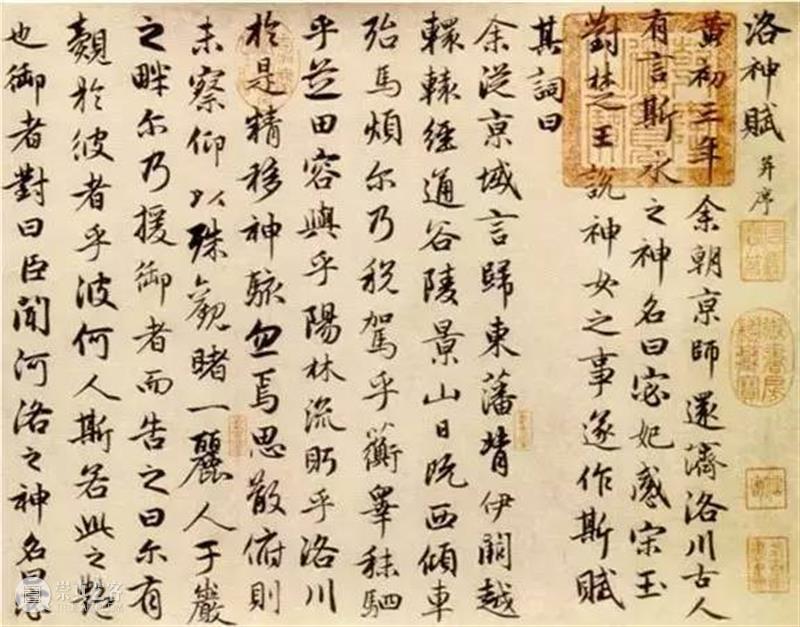 洛神賦 并序
黃初三年余朝京師還濟洛川古人
有言斯水之神名曰宓妃感宋玉
對楚王說神女之事遂作斯賦
其詞曰
余從京域言歸東藩背伊闕越
轘轅經通谷陵景山日既西傾車
殆馬煩尔乃稅駕乎蘅皋秣駟
乎芝田容與乎陽林流眄乎洛川
於是精移神駭忽焉思散俯則
未察仰以殊觀睹一麗人于巖
之畔尔乃援御者而告之曰尔有
覿於彼者乎彼何人斯若此之艷
也御者對曰臣聞河洛之神名曰宓
崇真艺客